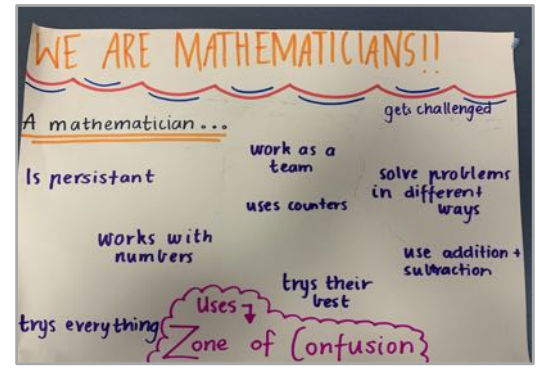 WE ARE MATHEMATICIANS!!
gets challenged
A mathematician...
work as a
team
Is persistant
solve problems
in different
ways
uses counters
works with
numbers
use addition +
subtraction
trys their
best
trys everything
Uses
Zone of Confusion